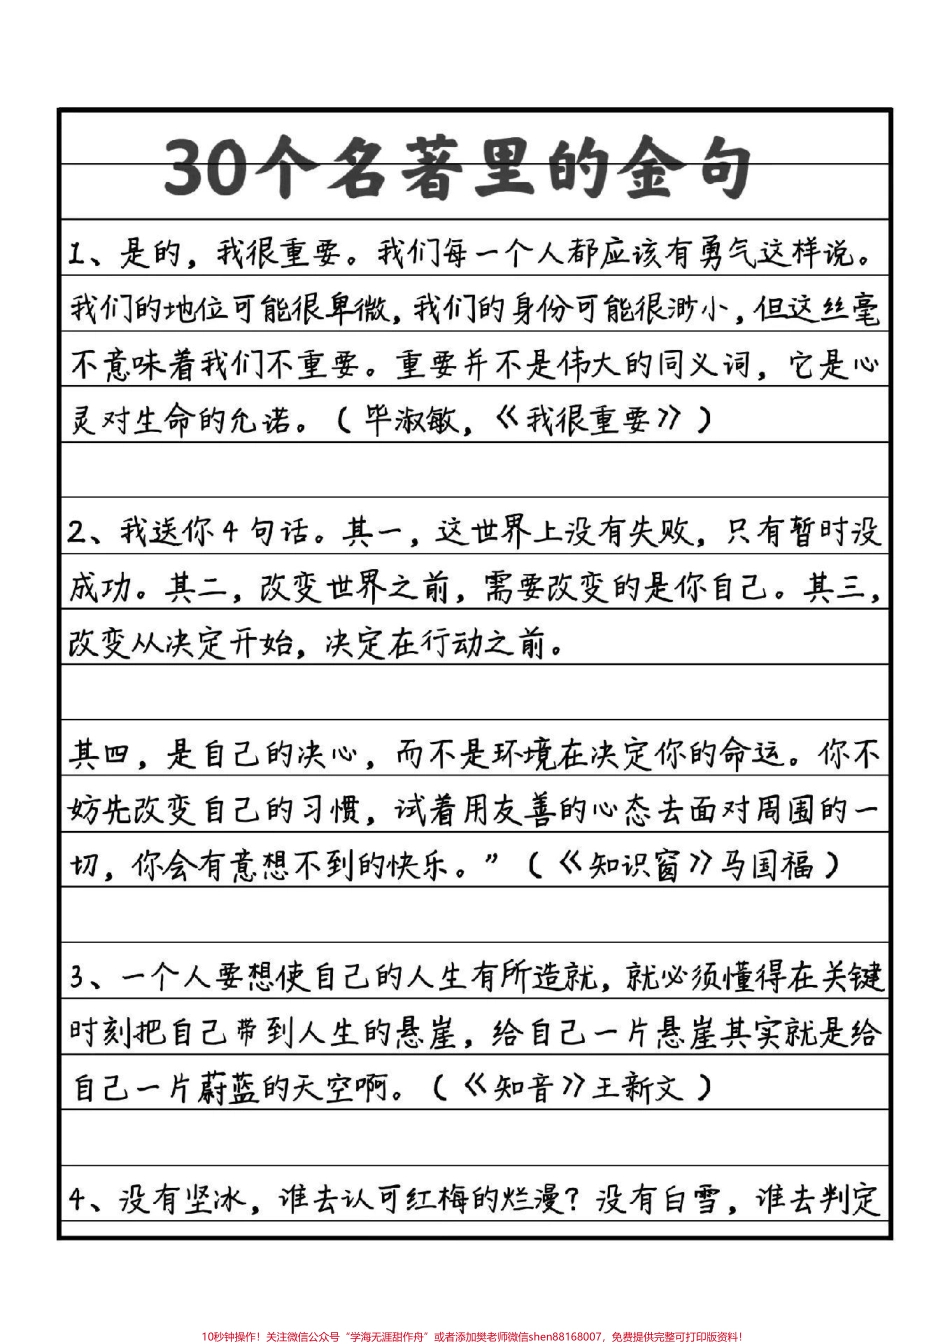 30个名著里的金句
1、是的，我很重要。我们每一个人都应该有勇气这样说。
我们的地位可能很卑微，我们的身份可能很渺小，但这丝毫
不意味着我们不重要。重要并不是伟大的同义词，它是心
灵对生命的允诺。（毕淑敏，《我很重要》）
2、我送你4句话。其一，这世界上没有失败，只有暂时没
成功。其二，改变世界之前，需要改变的是你自己。其三，
改变从决定开始，决定在行动之前。
其四，是自己的决心，而不是环境在决定你的命运。你不
妨先改变自己的习惯，试着用友善的心态去面对周围的一
切，你会有意想不到的快乐。”（《知识窗》马国福）
3、一个人要想使自己的人生有所造就，就必须懂得在关键
时刻把自己带到人生的悬崖，给自己一片悬崖其实就是给
自己一片蔚蓝的天空啊。（《知音》王新文）
4、没有坚冰，谁去认可红梅的烂漫？没有白雪，谁去判定
10秒钟操作！关注微信公众号“学海无涯甜作舟”或者添加樊老师微信shen88168007，免费提供完整可打印版资料！